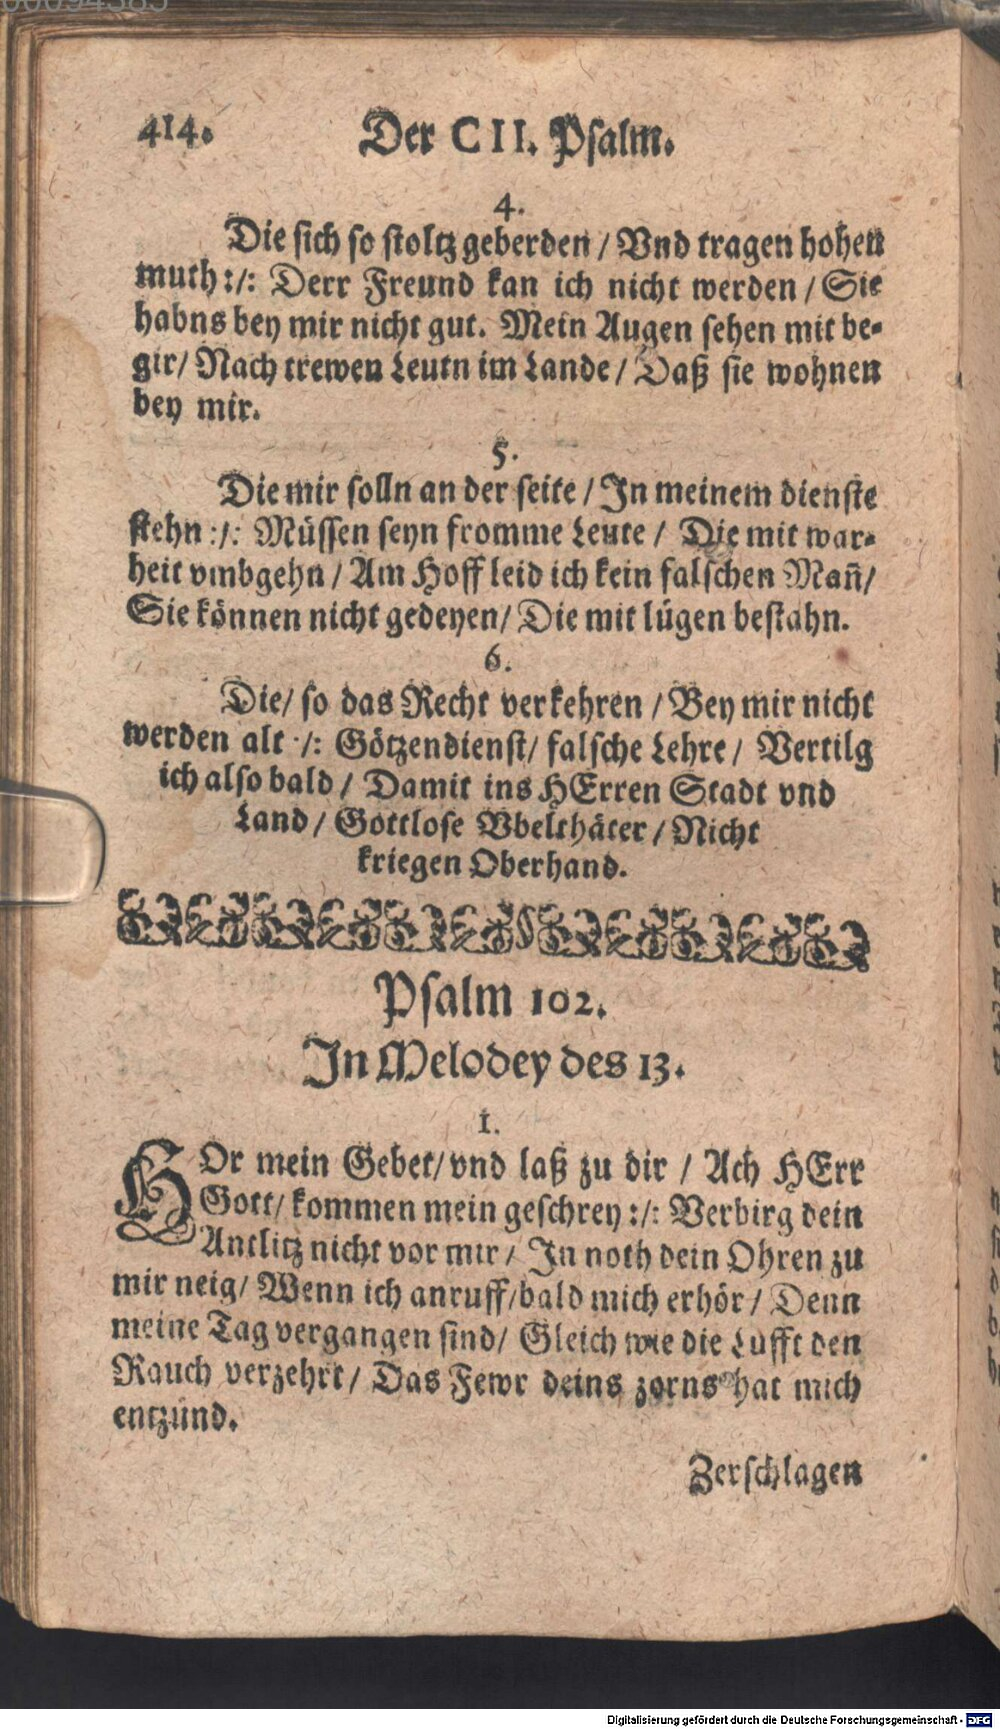 00094385
414.
Der CII. Psalm.
4.
Die sich so stoltz geberden / Vnd tragen hohen
muth :/: Derr Freund kan ich nicht werden / Sie
habns bey mir nicht gut. Mein Augen sehen mit be-
gir / Nach trewen Leutn im Lande / Daß sie wohnen
bey mir.
5.
Die mir solln an der seite / In meinem dienste
stehn :/: Müssen seyn fromme Leute / Die mit war-
heit vmbgehn / Am Hoff leid ich kein falschen Mañ /
Sie können nicht gedeyen / Die mit lügen bestahn.
6.
Die / so das Recht verkehren / Bey mir nicht
werden alt :/: Götzendienst / falsche Lehre / Vertilg
ich also bald / Damit ins HErren Stadt vnd
Land / Gottlose Vbelthäter / Nicht
kriegen Oberhand.
Psalm 102.
In Melodey des 13.
1.
HOr mein Gebet / vnd laß zu dir / Ach HErr
Gott / kommen mein geschrey :/: Verbirg dein
Antlitz nicht vor mir / In noth dein Ohren zu
mir neig / Wenn ich anruff / bald mich erhör / Denn
meine Tag vergangen sind / Gleich wie die Lufft den
Rauch verzehrt / Das Fewr deins zorns hat mich
entzünd.
Zerschlagen
Digitalisierung gefördert durch die Deutsche Forschungsgemeinschaft - DFG